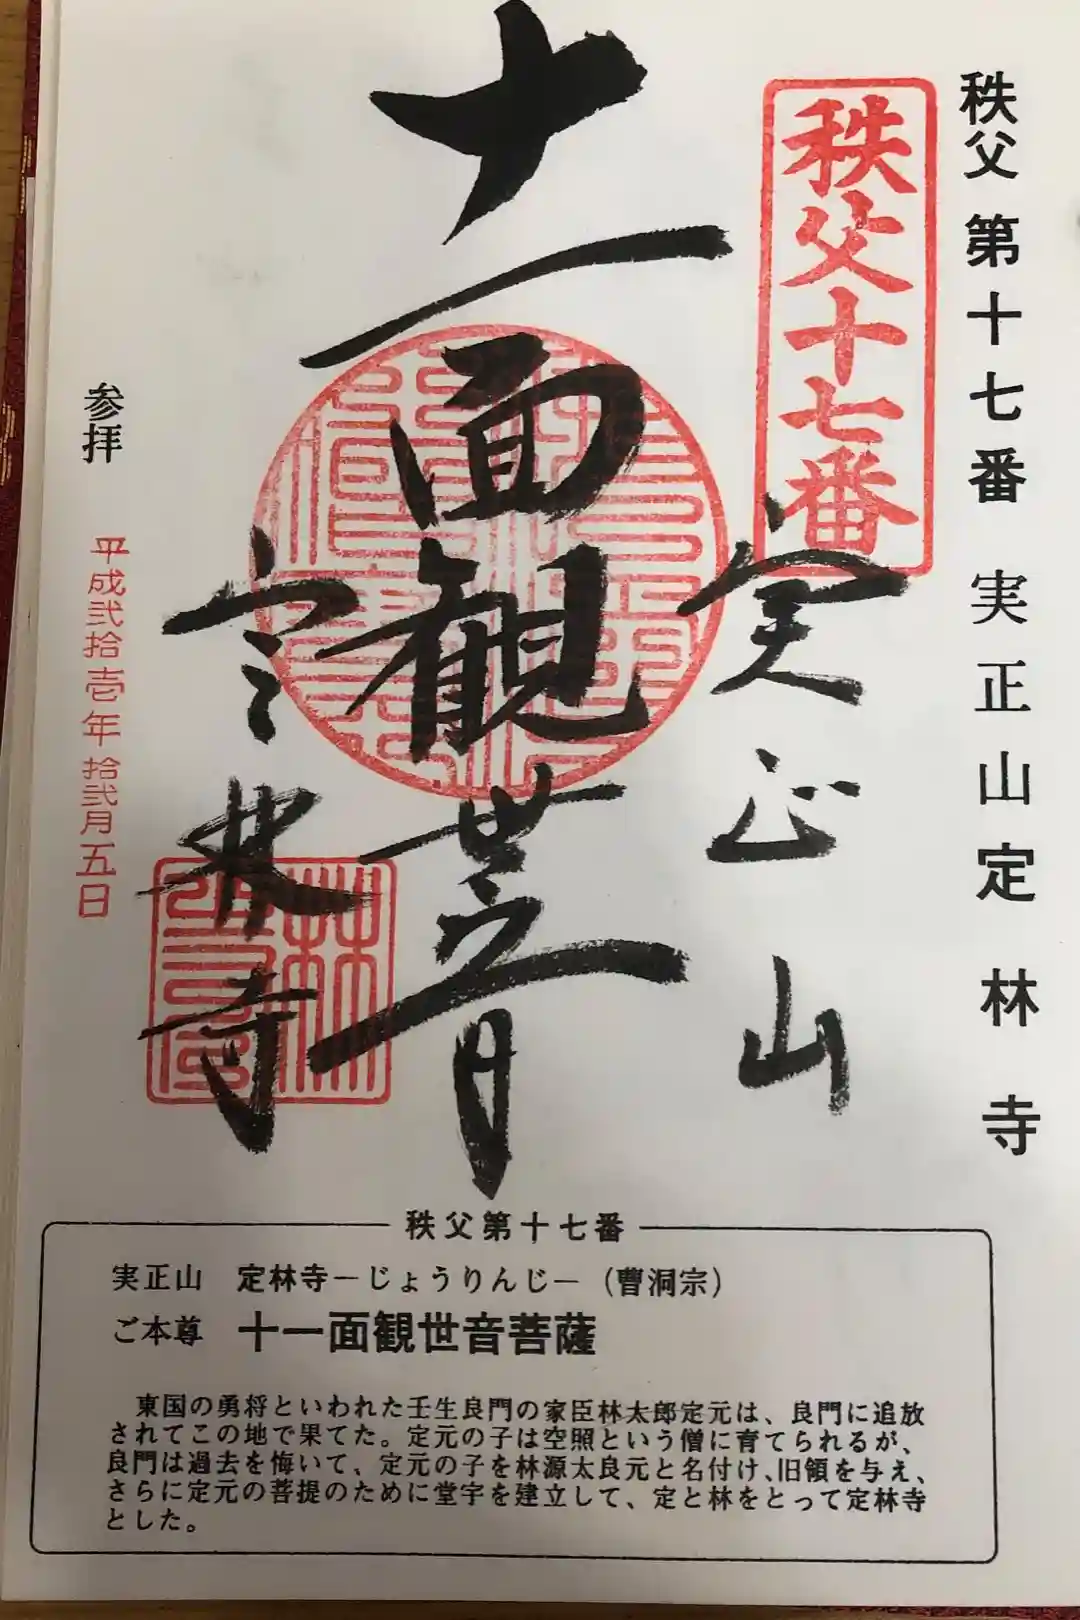 秩父第十七番 実正山定林寺
秩父十七番
実正山
十一面観世音
定林寺
参拝
平成弐拾壱年拾弐月五日
秩父第十七番
実正山 定林寺－じょうりんじ－（曹洞宗）
ご本尊 十一面観世音菩薩
東国の勇将といわれた壬生良門の家臣林太郎定元は、良門に追放
されてこの地で果てた。定元の子は空照という僧に育てられるが、
良門は過去を悔いて、定元の子を林源太良元と名付け、旧領を与え、
さらに定元の菩提のために堂宇を建立して、定と林をとって定林寺
とした。